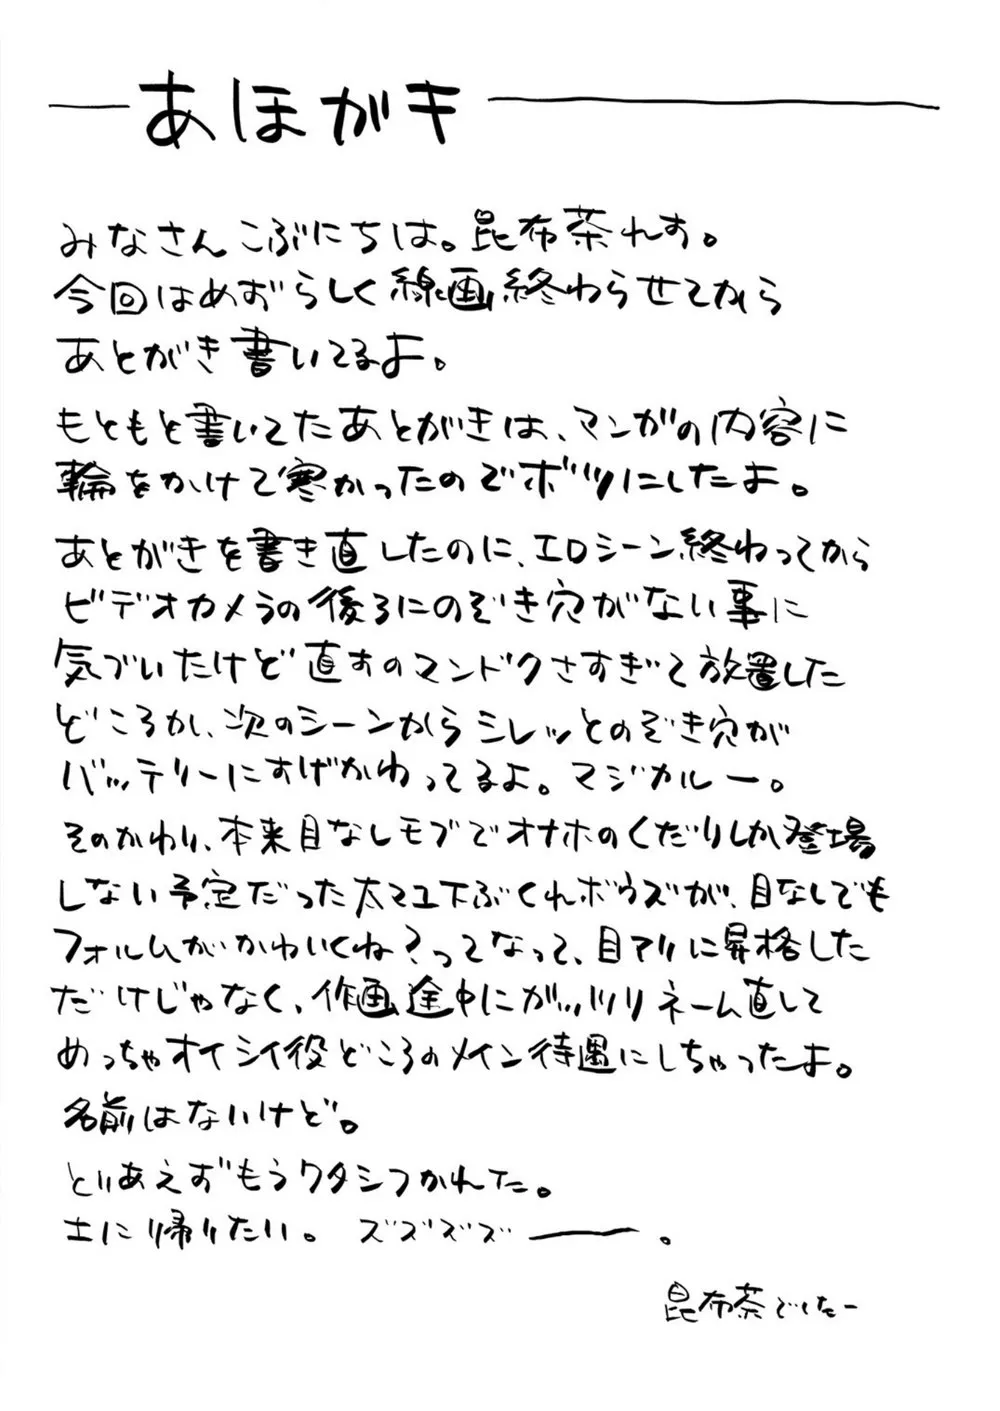 あほがき
みなさんこぶにちは。昆布茶れす。
今回はめずらしく線画終わらせてから
あとがき書いてるよ。
もともと書いてたあとがきは、マンガの内容に
輪をかけて寒かったのでボツにしたよ。
あとがきを書き直したのに、エロシーン終わってから
ビデオカメラの後ろにのぞき穴がない事に
気づいたけど直すのマンドクさすぎて放置した
どころか、次のシーンからシレッとのぞき穴が
バッテリーにすげかわってるよ。マジカルー。
そのかわり、本来目なしモブでオナホのくだりしか登場
しない予定だった太マユ下ぶくれボウズが、目なしでも
フォルムがかわいくね?ってなって、目アリに昇格した
だけじゃなく、作画途中にガッツリネーム直して
めっちゃオイシイ役どころのメイン待遇にしちゃったよ。
名前はないけど。
とりあえずもうワタシつかれた。
土に帰りたい。 ズズズズ━━。
昆布茶でしたー